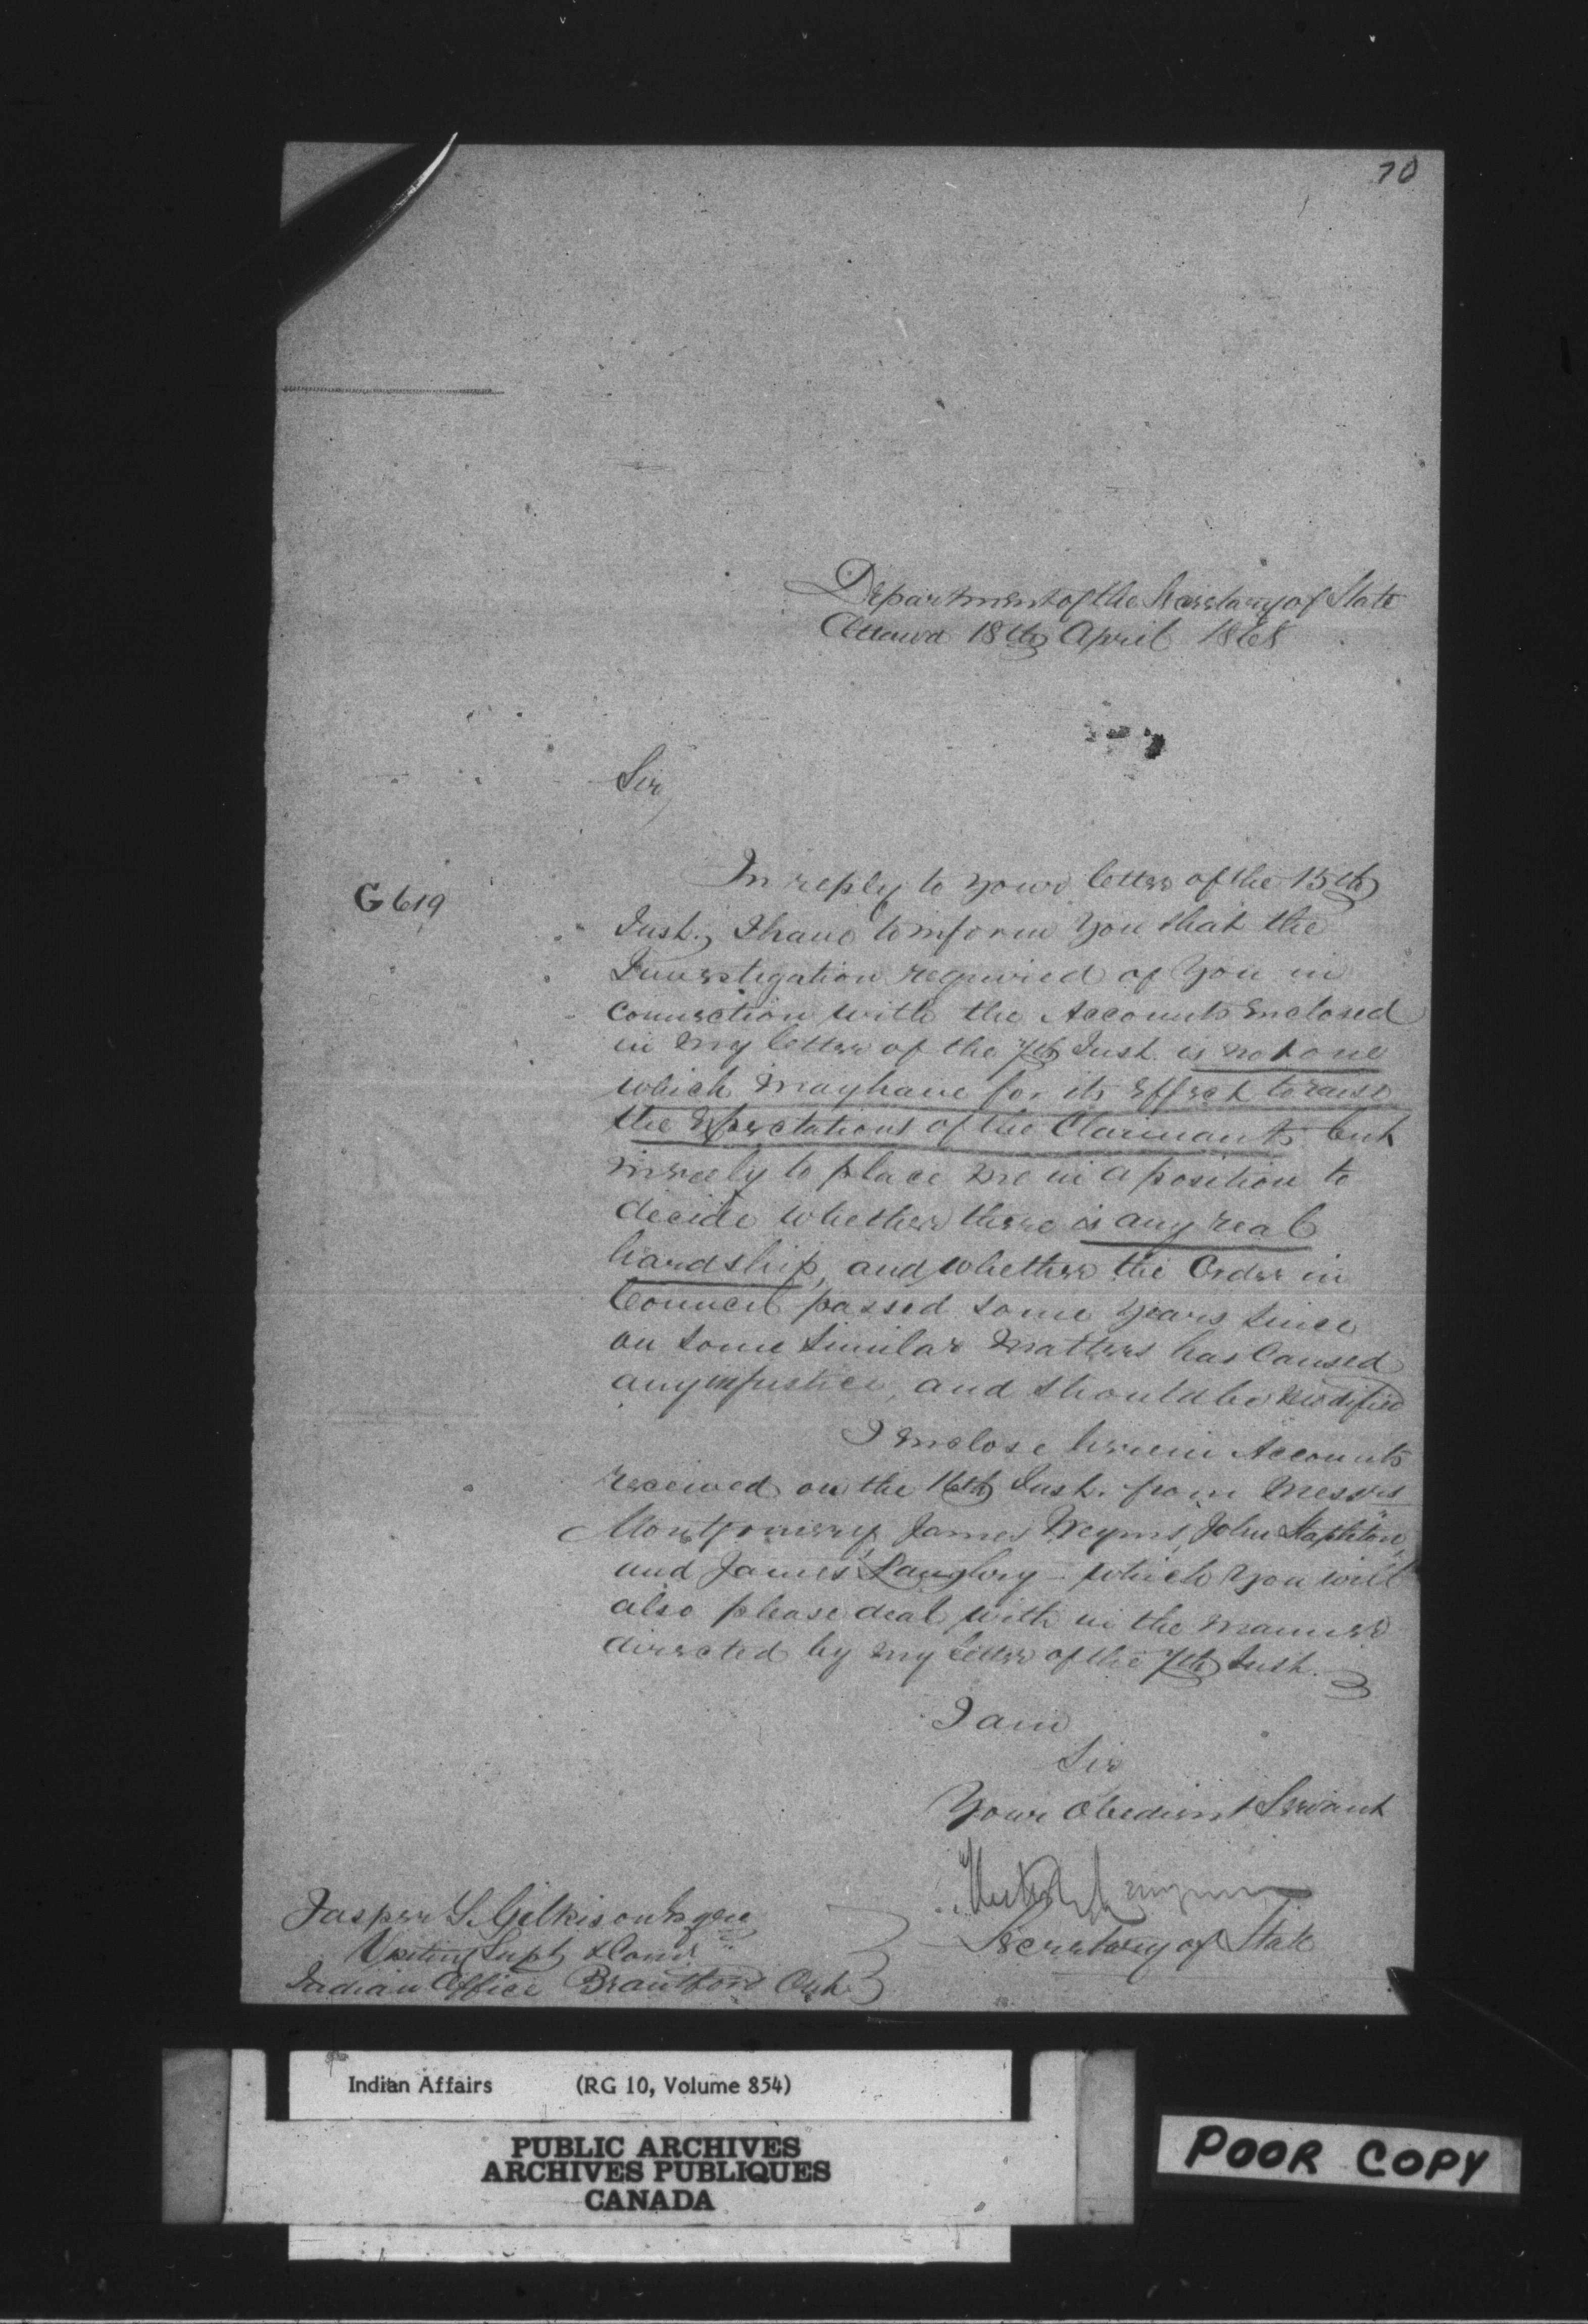 70
Department of the Secretary of State
Ottawa 18th April 1868
Sir,
In reply to your letter of the 15th
G 619
Inst., I have to inform you that the
Investigation required of you in
connection with the Accounts enclosed
in my letter of the 7th Inst. is not one
which may have for its effect to raise
the expectations of the Claimants but
merely to place me in a position to
decide whether there is any real
hardship, and whether the Order in
Council passed some years since
on some similar matters has caused
any injustice, and should be modified
I enclose herein Accounts
received on the 16th Inst. from Messrs
Montgomery, James John Stapleton,
and James which you will
also please deal with in the manner
directed by my letter of the 7th Inst.
I am
Sir
Your Obedient Servant
Secretary of State
Jasper T. Gilkison Esqre
Visiting Supt &
Indian Office Brantford Ont.
Indian Affairs (RG 10, Volume 854)
PUBLIC ARCHIVES
ARCHIVES PUBLIQUES
CANADA
POOR COPY